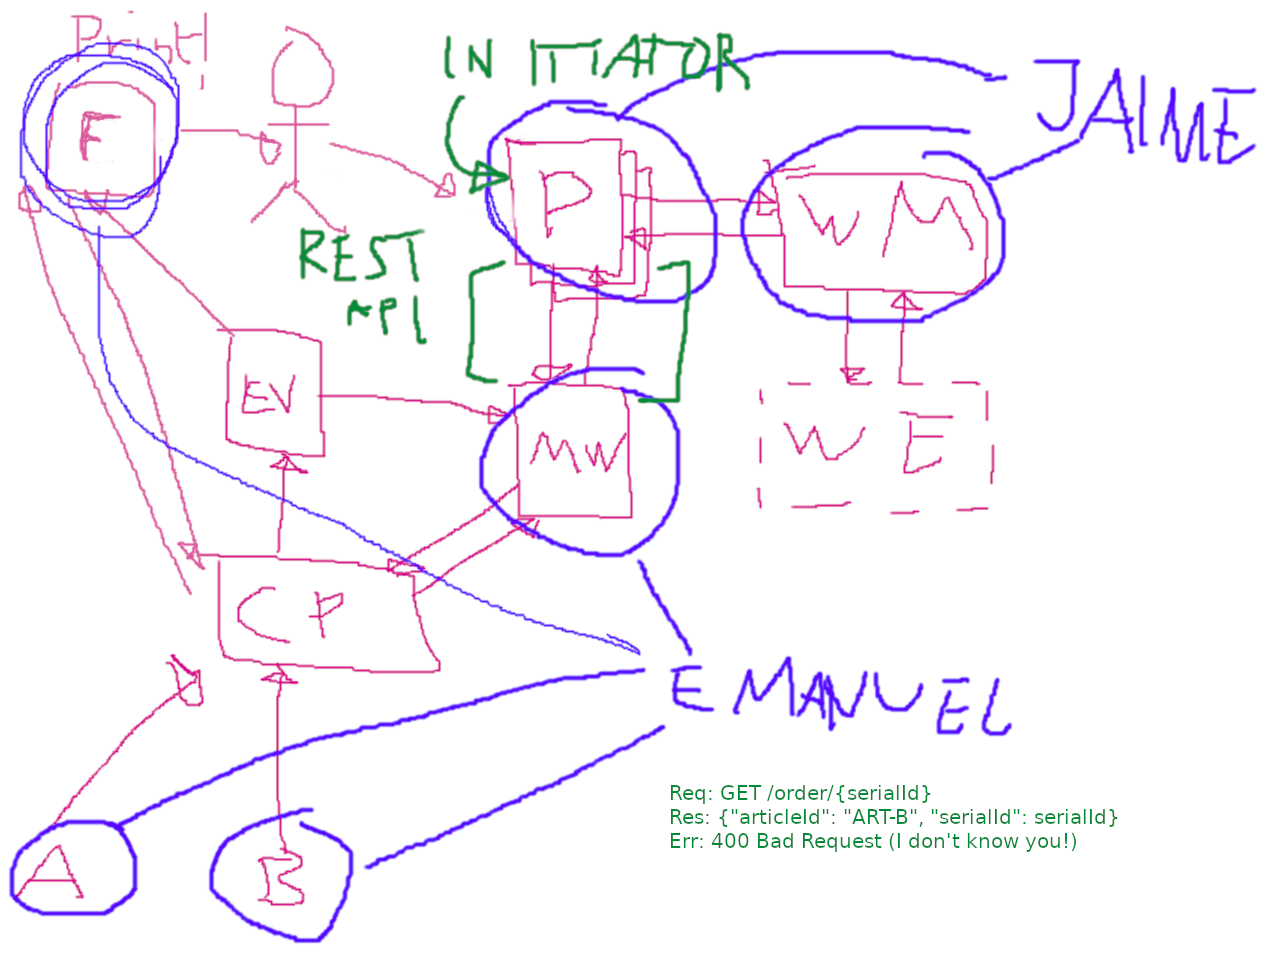 Print!
INITIATOR
JAIME
F
P
WM
REST
API
EV
MW
WE
CP
EMANUEL
Req: GET /order/{serialId}
Res: {"articleId": "ART-B", "serialId": serialId}
Err: 400 Bad Request (I don't know you!)
A
B